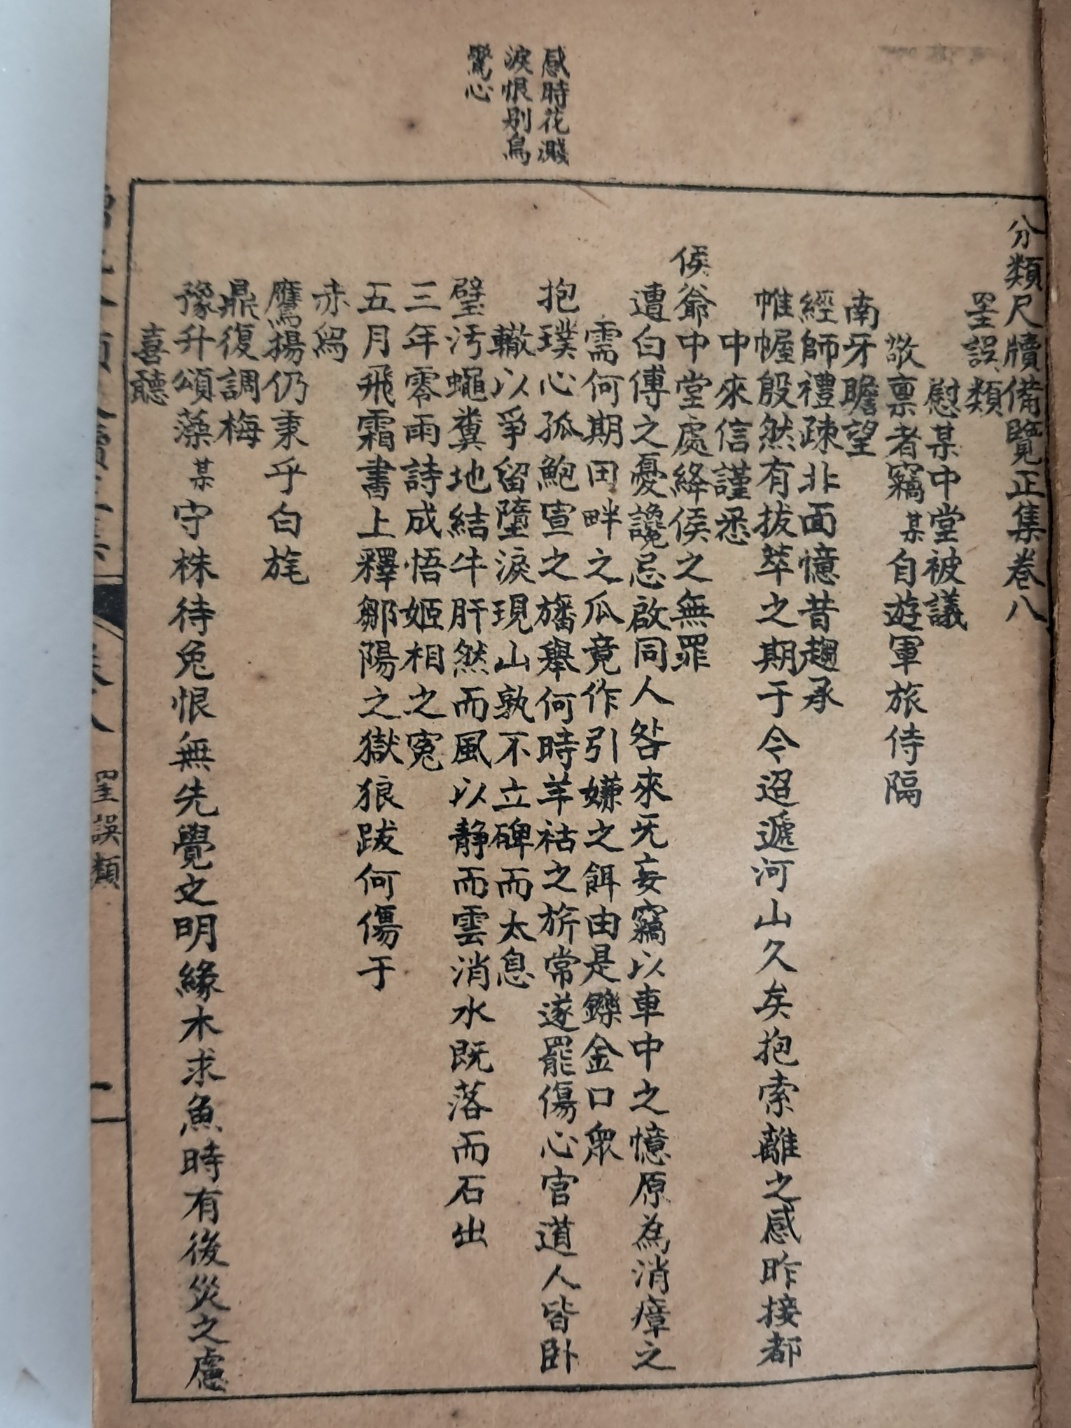 感時花濺
淚恨別鳥
驚心
分類尺牘備覽正集卷八
罣誤類
慰某中堂被議
敬稟者竊某自遊軍旅侍隔
南牙瞻望
經師禮疎北面憶昔趨承
帷幄殷然有拔萃之期于今迢遞河山久矣抱索離之感昨接都
中來信謹悉
侯爺中堂處絳侯之無罪
遭白傅之憂讒忌啟同人咎來旡妄竊以車中之憶原為消瘴之
需何期田畔之瓜竟作引嫌之餌由是鑠金口眾
抱璞心孤鮑宣之旛舉何時羊祜之旂常遂罷傷心官道人皆臥
轍以爭留墮淚現山孰不立碑而太息
璧汚蠅糞地結牛肝然而風以静而雲消水既落而石出
三年零雨詩成悟姬相之寃
五月飛霜書上釋鄒陽之獄狼跋何傷于
赤舄
鷹揚仍秉乎白旄
鼎復調梅
豫升頌藻某守株待兔恨無先覺之明緣木求魚時有後災之慮
喜聽
卷八
罣誤類
一